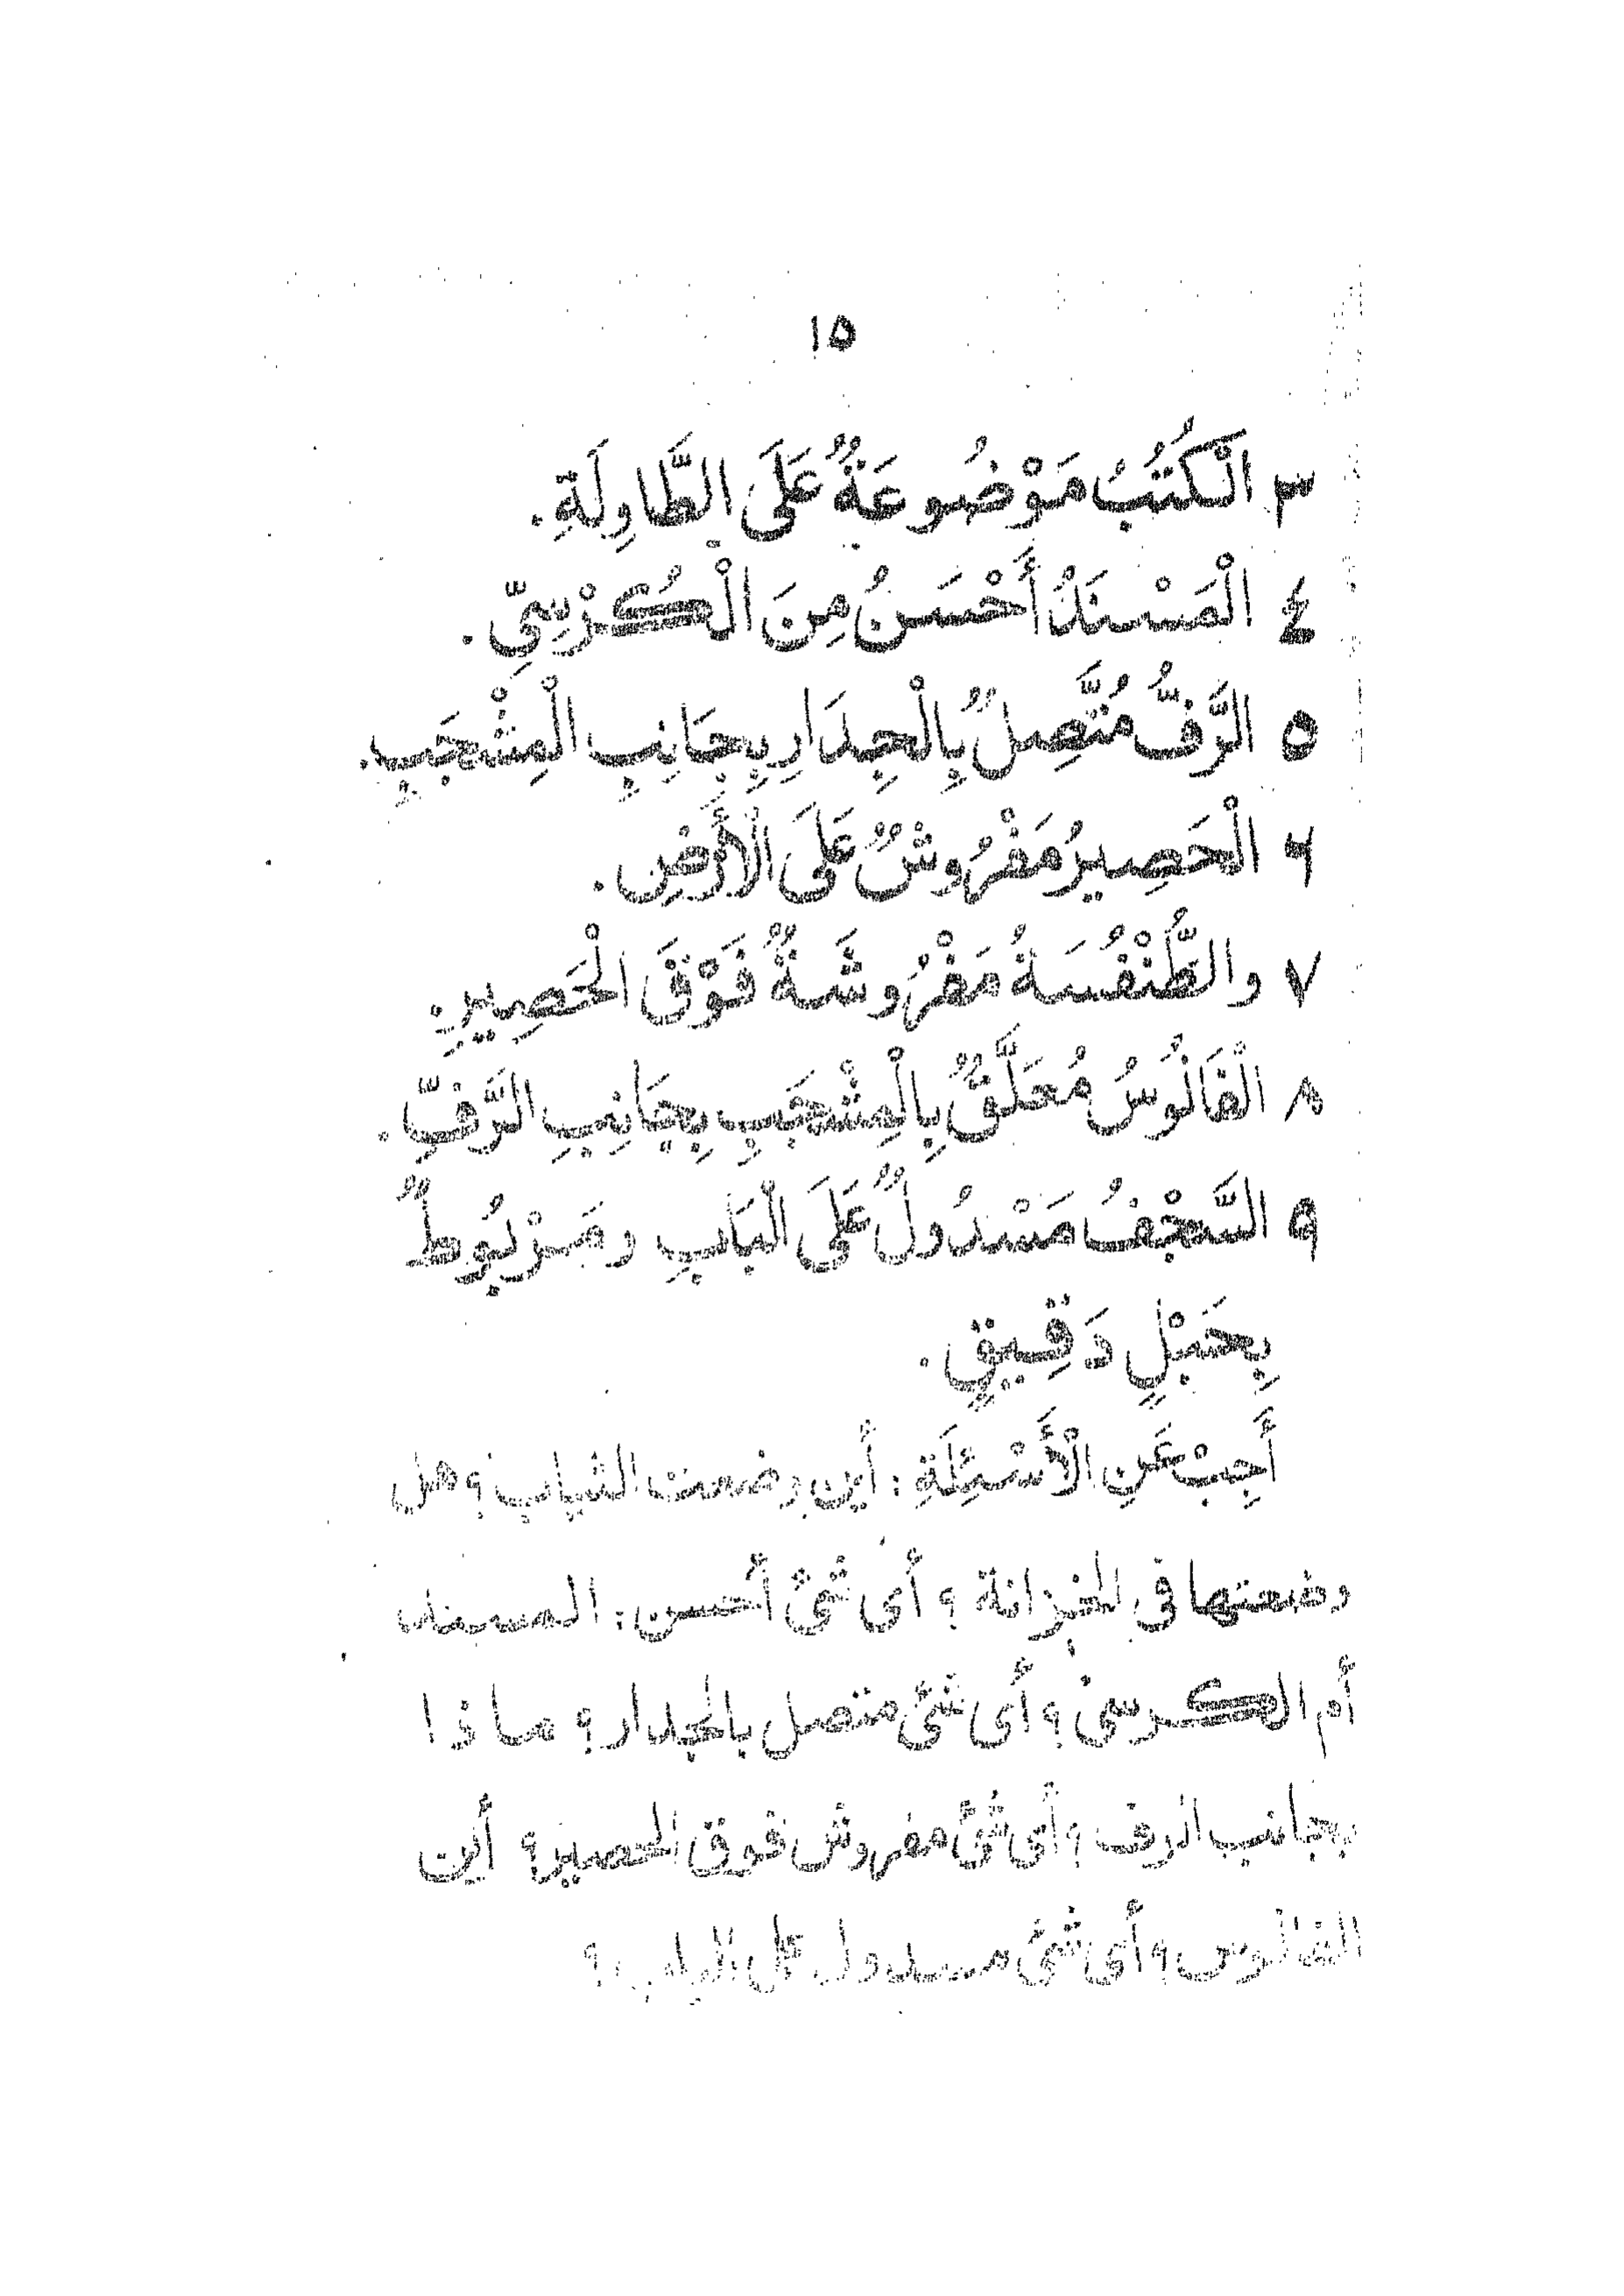 ١٥
٣ الْكُتُبُ مَوْضُوعَةٌ عَلَى الطَّاوِلَةِ.
٤ الْمَسْنَدُ أَحْسَنُ مِنَ الْكُرْسِيِّ.
٥ الرَّفُّ مُتَّصِلٌ بِالْجِدَارِ بِجَانِبِ الْمِشْجَبِ.
٦ الْحَصِيرُ مَفْرُوشٌ عَلَى الْأَرْضِ.
٧ والطُّنْفُسَةُ مَفْرُوشَةٌ فَوْقَ الْحَصِيرِ.
٨ الْفَانُوسُ مُعَلَّقٌ بِالْمِشْجَبِ بِجَانِبِ الرَّفِّ.
٩ السَّجْفُ مَسْدُولٌ عَلَى الْبَابِ ومَرْبُوطٌ
بِحَبْلٍ دَقِيقٍ.
أَجِبْ عَنِ الْأَسْئِلَةِ: أين وضعت الثياب؟ وهل
وضعتها في الخزانة؟ أى شئ أحسن: المسند
أم الكرسى؟ أى شئ متصل بالجدار؟ ماذا
بجانب الرف؟ أى شئ مفروش فوق الحصير؟ أين
الفانوس؟ أى شئ مسدول على الباب؟